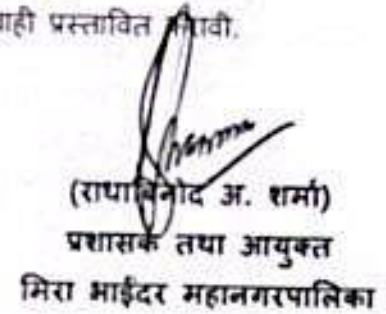 ाही प्रस्तावित करावी.
(राधाबिनोद अ. शर्मा)
प्रशासक तथा आयुक्त
मिरा भाईंदर महानगरपालिका